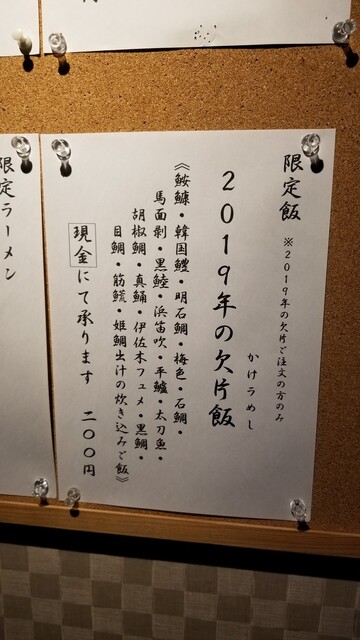 限定飯 ※2019年の欠片ご注文の方のみ
かけらめし
2019年の欠片飯
《鮟鱇・韓国鱧・明石鯛・梅色・石鯛・
馬面剥・黒鯥・浜笛吹・平鱸・太刀魚・
胡椒鯛・真鯒・伊佐木フュメ・黒鯛・
目鯛・筋鱲・姫鯛出汁の炊き込みご飯》
現金にて承ります 二〇〇円
限定ラーメン